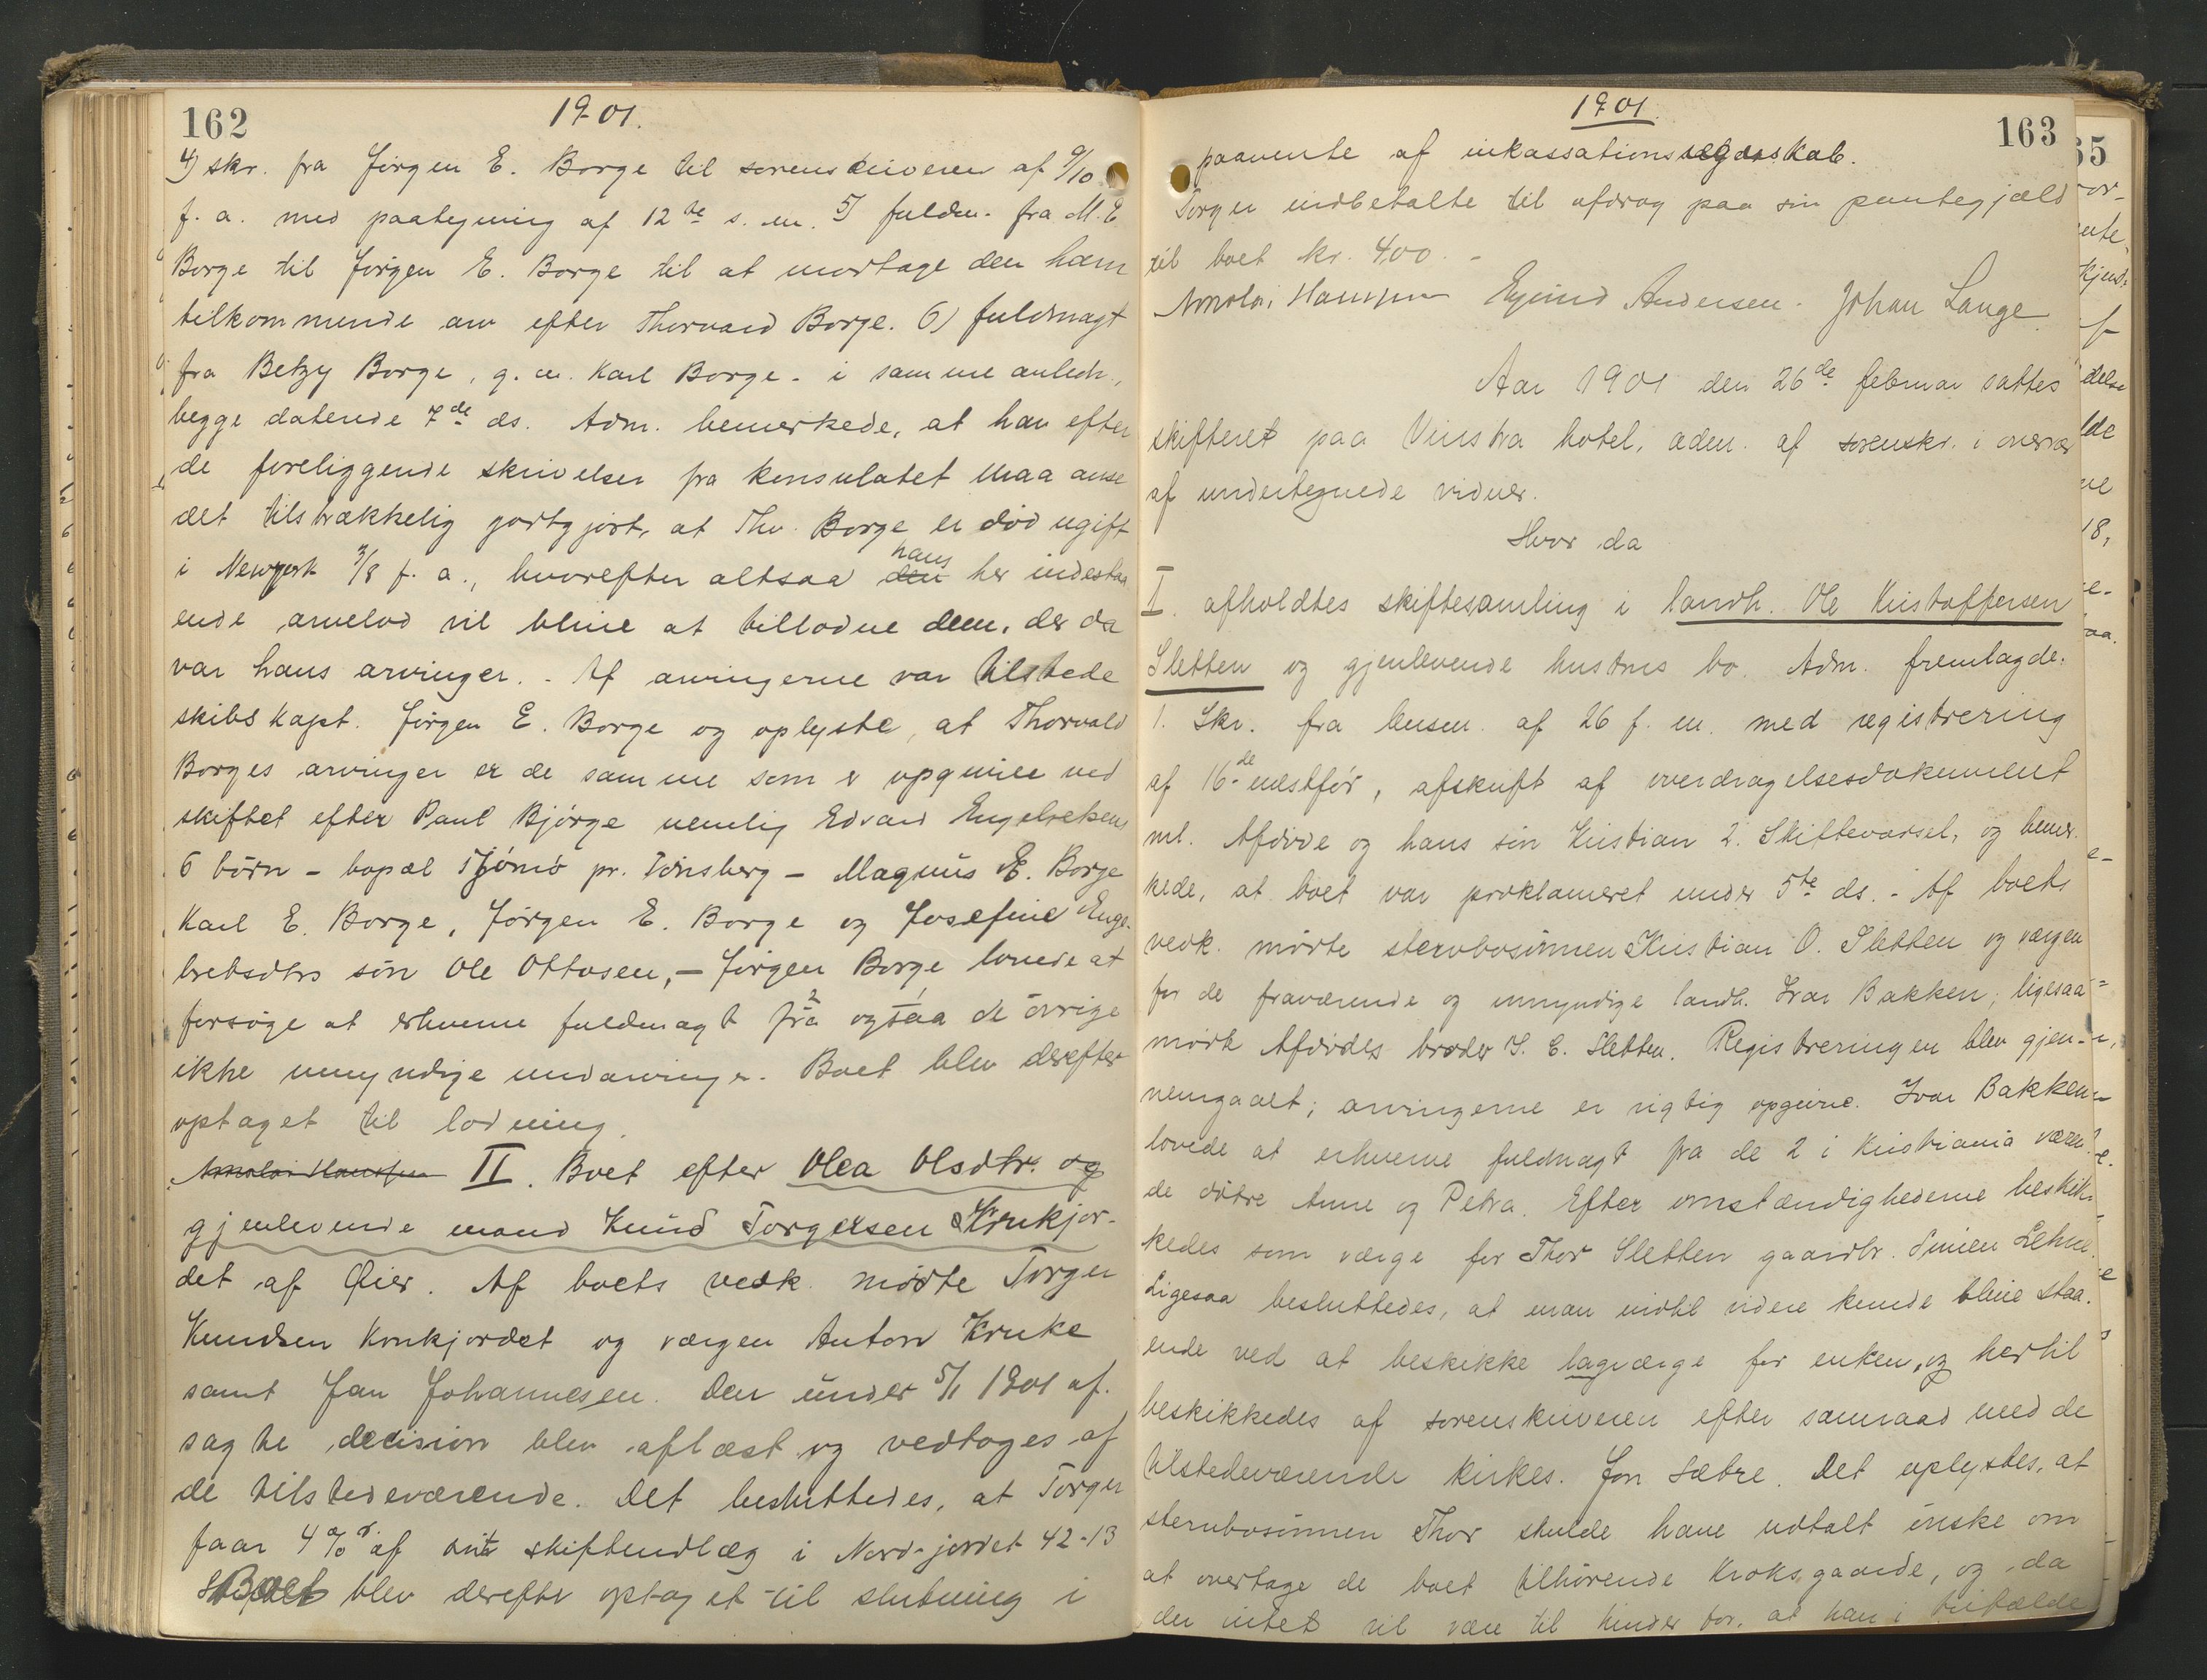 162
1901.
4) skr. fra Jørgen E. Borge til sorenskriveren af 9/10
f. a. med paategning af 12te s. m. 5) fuldm. fra M. E.
Borge til Jørgen E. Borge til at modtage den ham
tilkommende arv efter Thorvard Borge. 6) fuldmagt
fra Betzy Borge, g. m. Karl Borge. i samme anledn.,
begge daterede 7de ds. Adm. bemerkede, at han efter
de foreliggende skrivelser fra konsulatet maa anse
det tilstrækkelig godtgjort, at Thv. Borge er død ugift
i Newyork 3/8 f. a., hvorefter altsaa den hans her indestaa
ende arvelod vil blive at tillodne dem, der da
var hans arvinger. - Af arvingerne var tilstede
skibskapt. Jørgen E. Borge og oplyste, at Thorvald
Borges arvinger er de samme som er opgivne ved
skiftet efter Paul Bjørge nemlig Edvard Engebretsens
6 børn - bopæl Tjømø pr. Tønsberg - Magnus E. Borge
Karl E. Borge, Jørgen E. Borge og Josefine Enge-
bretsdtrs søn Ole Ottosen, - Jørgen Borge lovede at
forsøge at erhverve fuldmagt fra ogsaa de øvrige
ikke umyndige medarvinger. Boet blev derefter
optaget til lodning.
II. Boet efter Olea Olsdtr. og
gjenlevende mand Knud Torgersen Krukjor-
det af Øier. Af boets vedk. mødte Torger
Knudsen Krukjordet og værgen Anton Kruke
samt Jan Johannesen. Den under 5/1 1901 af-
sagte decision blev aflæst og vedtoges af
de tilstedeværende. Det besluttedes, at Torger
faar 4 % af sit skifteudlæg i Nord-jordet 42-13
Boet blev derefter optaget til slutning i
1901.
163
paavente af inkassationsregnskab.
Torger indbetalte til afdrag paa sin pantegjæld
til boet kr. 400. -
Eyvind Andersen. Johan Lange
Aar 1901 den 26de februar sattes
skifteret paa Vinstra hotel, adm. af sorenskr. i overvær
af undertegnede vidner.
Hvor da
I. afholdtes skiftesamling i landh. Ole Kristoffersen
Sletten og gjenlevende hustrus bo. Adm. fremlagde:
1. Skr. fra lensm. af 26 f. m. med registrering
af 16de næstfør, afskrift af overdragelsesdokument
ml. Afdøde og hans søn Kristian 2. Skiftevarsel, og bemer-
kede, at boet var proklameret under 5te ds. - Af boets
vedk. mødte stervbosønnen Kristian O. Sletten og værgen
for de fraværende og umyndige landh. Ivar Bakken; ligesaa
mødte Afdødes broder S. C. Sletten. Registreringen blev gjen-
nemgaaet; arvingerne er rigtig opgivne. Ivar Bakken
lovede at erhverve fuldmagt fra de 2 i Kristiania væren-
de døtre Anne og Petra. Efter omstændighederne beskik-
kedes som værge for Thor Sletten gaardbr. Simen Lehne.
Ligesaa besluttedes, at man indtil videre kunde blive staa-
ende ved at beskikke lagværge for enken, og hertil
beskikkedes af sorenskriveren efter samraad med de
tilstedeværende kirkes. Jon Sætre. Det oplystes, at
stervbosønnen Thor skulde have udtalt ønske om
at overtage de boet tilhørende Kroksgaarde, og da
der intet vil være til hinder for, at han i tilfælde